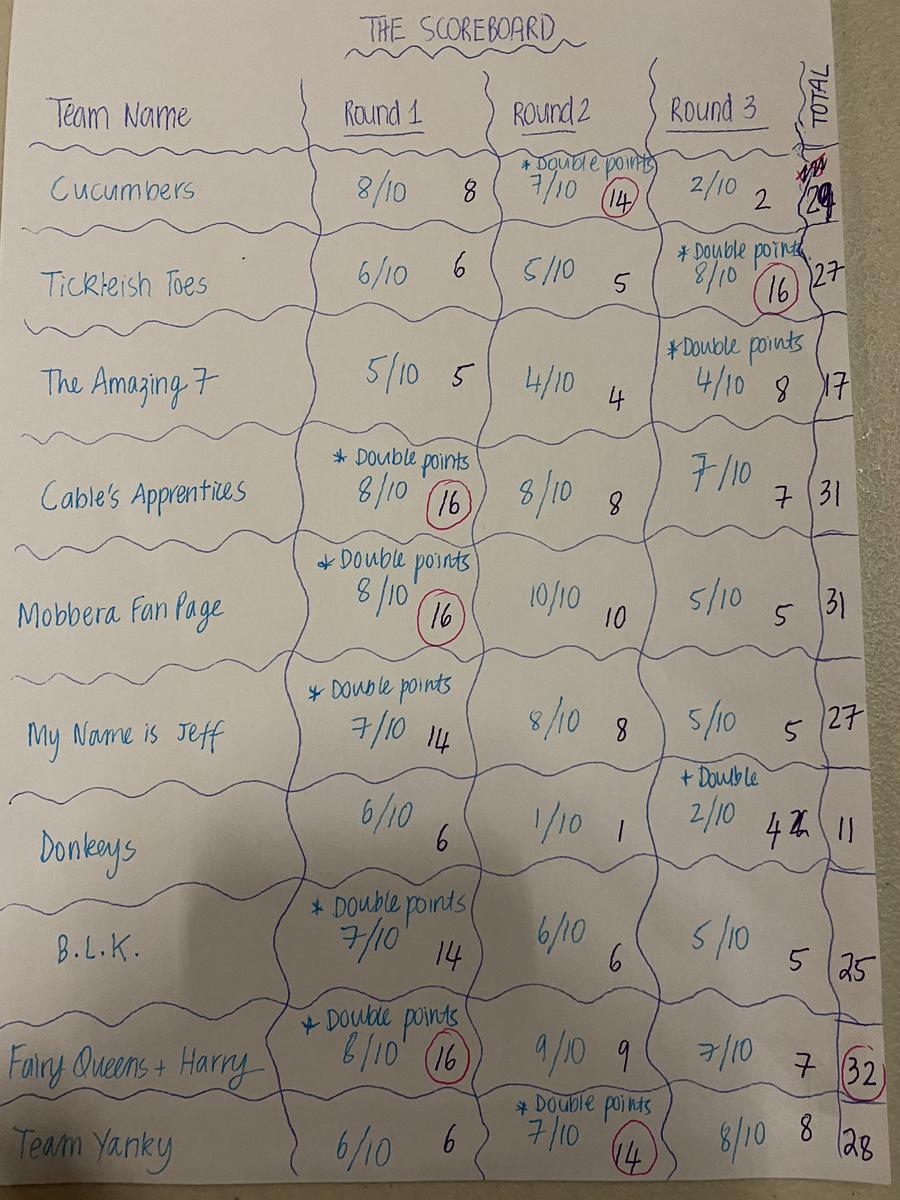 THE SCOREBOARD
Team Name Round 1 Round 2 Round 3 TOTAL
* Double points
Cucumbers 8/10 8 7/10 14 2/10 2
* Double points
Tickleish Toes 6/10 6 5/10 5 8/10 16 27
* Double points
The Amazing 7 5/10 5 4/10 4 4/10 8 17
* Double points
Cable's Apprentices 8/10 16 8/10 8 7/10 7 31
* Double points
Mobbera Fan Page 8/10 16 10/10 10 5/10 5 31
* Double points
My Name is Jeff 7/10 14 8/10 8 5/10 5 27
+ Double
Donkeys 6/10 6 1/10 1 2/10 4 11
* Double points
B.L.K. 7/10 14 6/10 6 5/10 5 25
* Double points
Fairy Queens + Harry 8/10 16 9/10 9 7/10 7 32
* Double points
Team Yanky 6/10 6 7/10 14 8/10 8 28